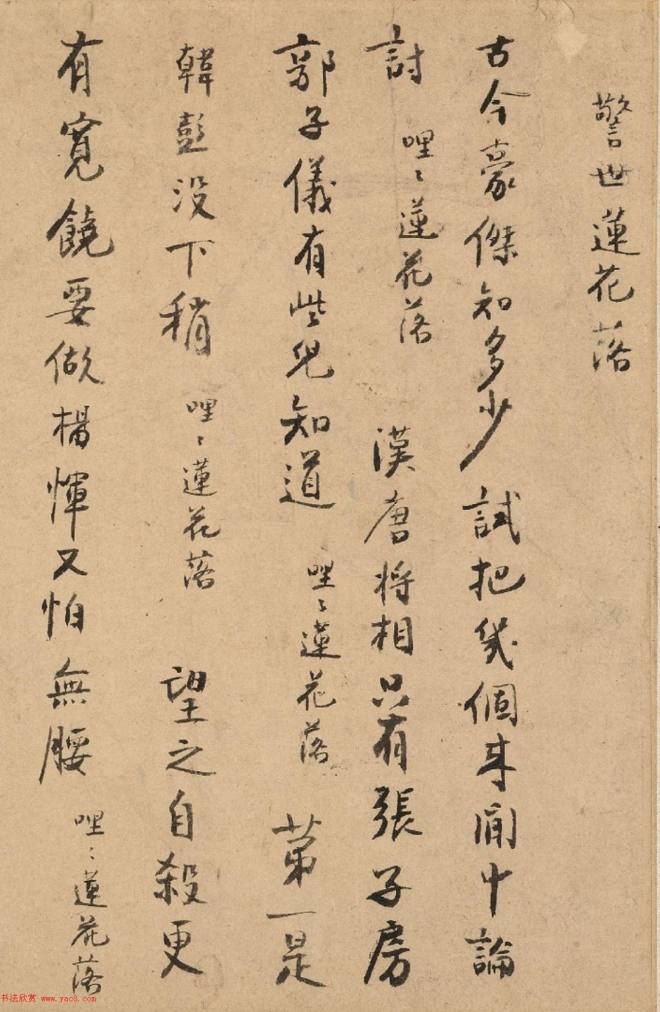 警世蓮花落
古今豪傑知多少試把幾個来閒中論
討哩〻蓮花落漢唐将相只有張子房
郭子儀有些兒知道哩〻蓮花落苐一是
韓彭没下稍哩〻蓮花落望之自殺更
有寬饒要做楊惲又怕無腰哩〻蓮花落
书法欣赏 www.yac8.com